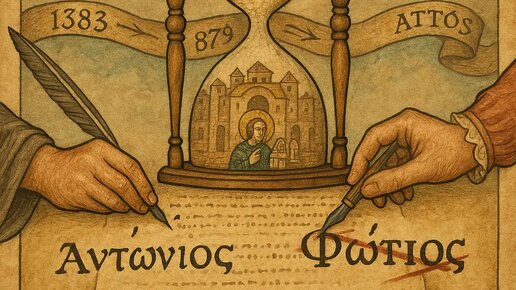 1383 → 879 → ΑΤΤΟΣ
Αντώνιος Φώτιος